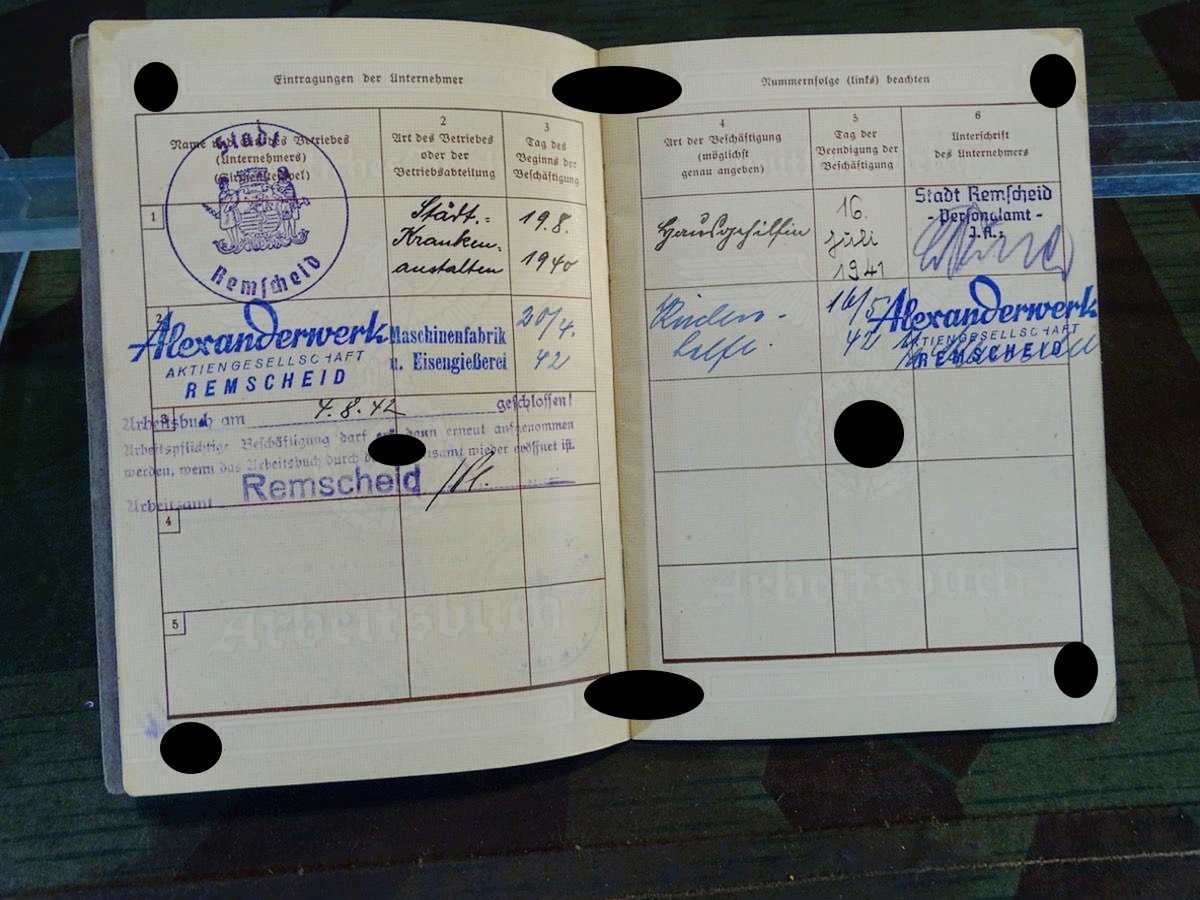 Eintragungen der Unternehmer
1
Name und Sitz des Betriebes
(Unternehmers)
(Firmenstempel)
2
Art des Betriebes
oder der
Betriebsabteilung
3
Tag des
Beginns der
Beschäftigung
Stadt
Remscheid
1
Städt.=
Kranken=
anstalten
19.8.
1940
2
Alexanderwerk
AKTIENGESELLSCHAFT
REMSCHEID
Maschinenfabrik
u. Eisengießerei
20/4.
42
3
Arbeitsbuch am 4.8.42 geschlossen!
Arbeitspflichtige Beschäftigung darf erst dann erneut aufgenommen
werden, wenn das Arbeitsbuch durch das Arbeitsamt wieder eröffnet ist.
Arbeitsamt Remscheid
4
5
Arbeitsbuch
Nummernfolge (links) beachten
4
Art der Beschäftigung
(möglichst
genau angeben)
5
Tag der
Beendigung der
Beschäftigung
6
Unterschrift
des Unternehmers
Hausgehilfin
16.
Juli
1941
Stadt Remscheid
- Personalamt -
J.A.:
16/5
42
Alexanderwerk
AKTIENGESELLSCHAFT
REMSCHEID
Arbeitsbuch